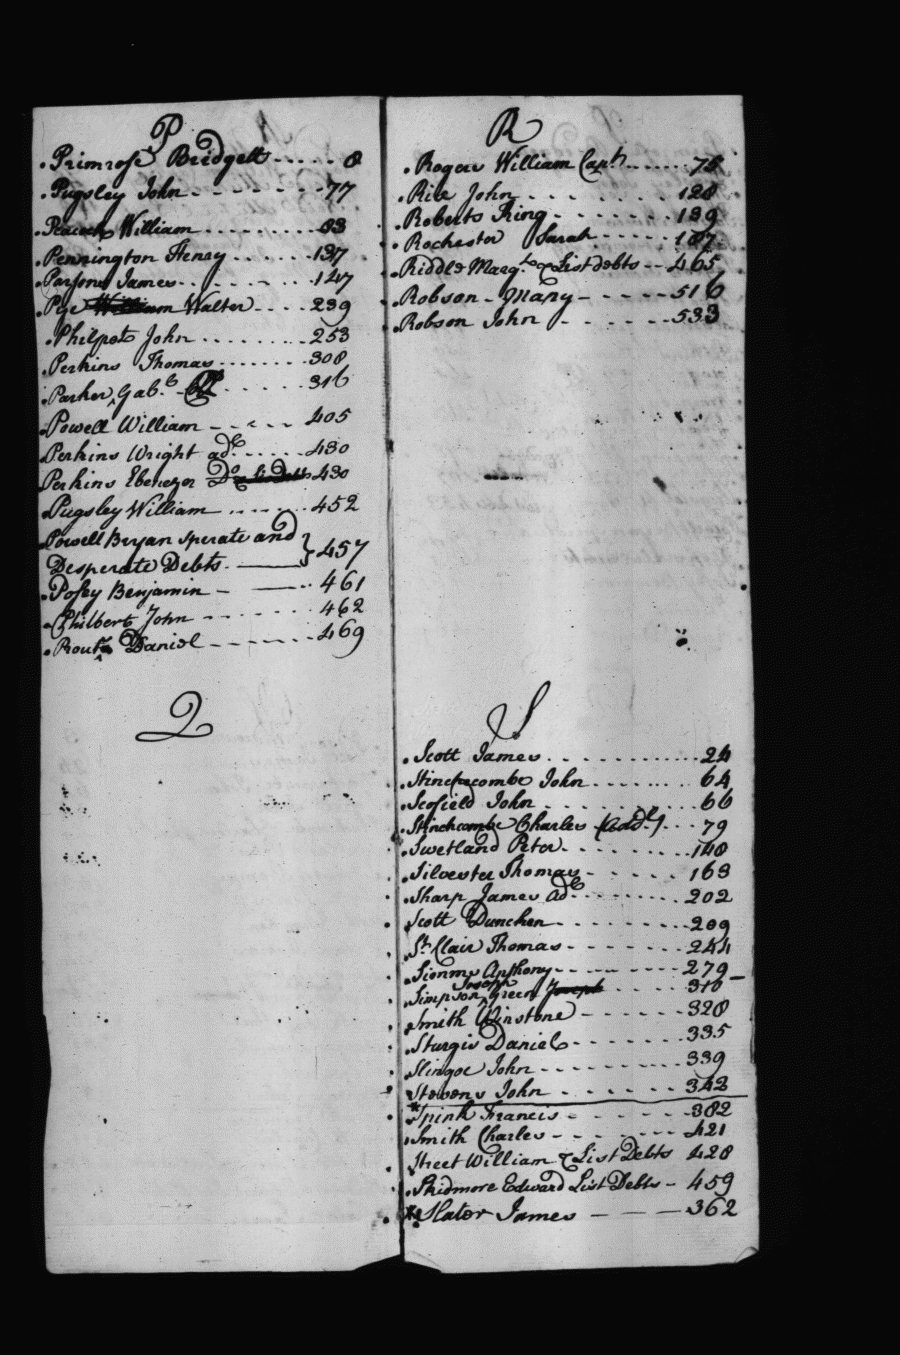 P
Primrose Bridgett ----- 8
Pugsley John - - - - - - - 77
Peacock William ........ 83
Pennington Henry ...... 137
Parsons James .. . . . . . 147
Pye William Walter .... 239
Philpot John ........ 253
Perkins Thomas ....... 308
Parker, Gab.l ...... 316
Powell William - - - - - 405
Perkins Wright ad.l ..... 430
Perkins Ebenezer Do 430
Pugsley William .. .... 452
Powell Bryan Sperate and
Desperate Debts. ——— } 457
Posey Benjamin - —— .. 461
Philbert John - - - .. 462
Routh Daniel - - - - ... 469
Q
R
Rogers William Capt. ...... 75
Rice John . . . . . . . 128
Roberts King . - - - - - - . 139
Rochester Sarah ...... 187
Riddle Margt. & List debts -- 465
Robson - Mary - - - - - - 516
Robson John - - - - ... 533
S
Scott James . . . . . . . . . . 24
Stinchcombe John ....... 64
Scofield John . . . . . . . . 66
Stinchcombe Charles (Add.l) ... 79
Swetland Peter . - - - - ... 148
Silvester Thomas - - - ... 163
Sharp James ad.l ....... 202
Scott Dunchen ........ 209
St. Clair Thomas - - - - .... 244
Simms Anthony - - - - - - - 279 -
Joseph
Simpson, Green Joseph ..... 310
Smith Winstone - - - - ... 328
Sturgis Daniel - - - - - - 335
Slingoe John - - - - ... 339
Stevens John . . . . . . 342
* Spink Francis - - - - - - 382
Smith Charles - - - - - - 421
Street William & List Debts 428
Skidmore Edward List Debts - 459
* Slater James — — — 362